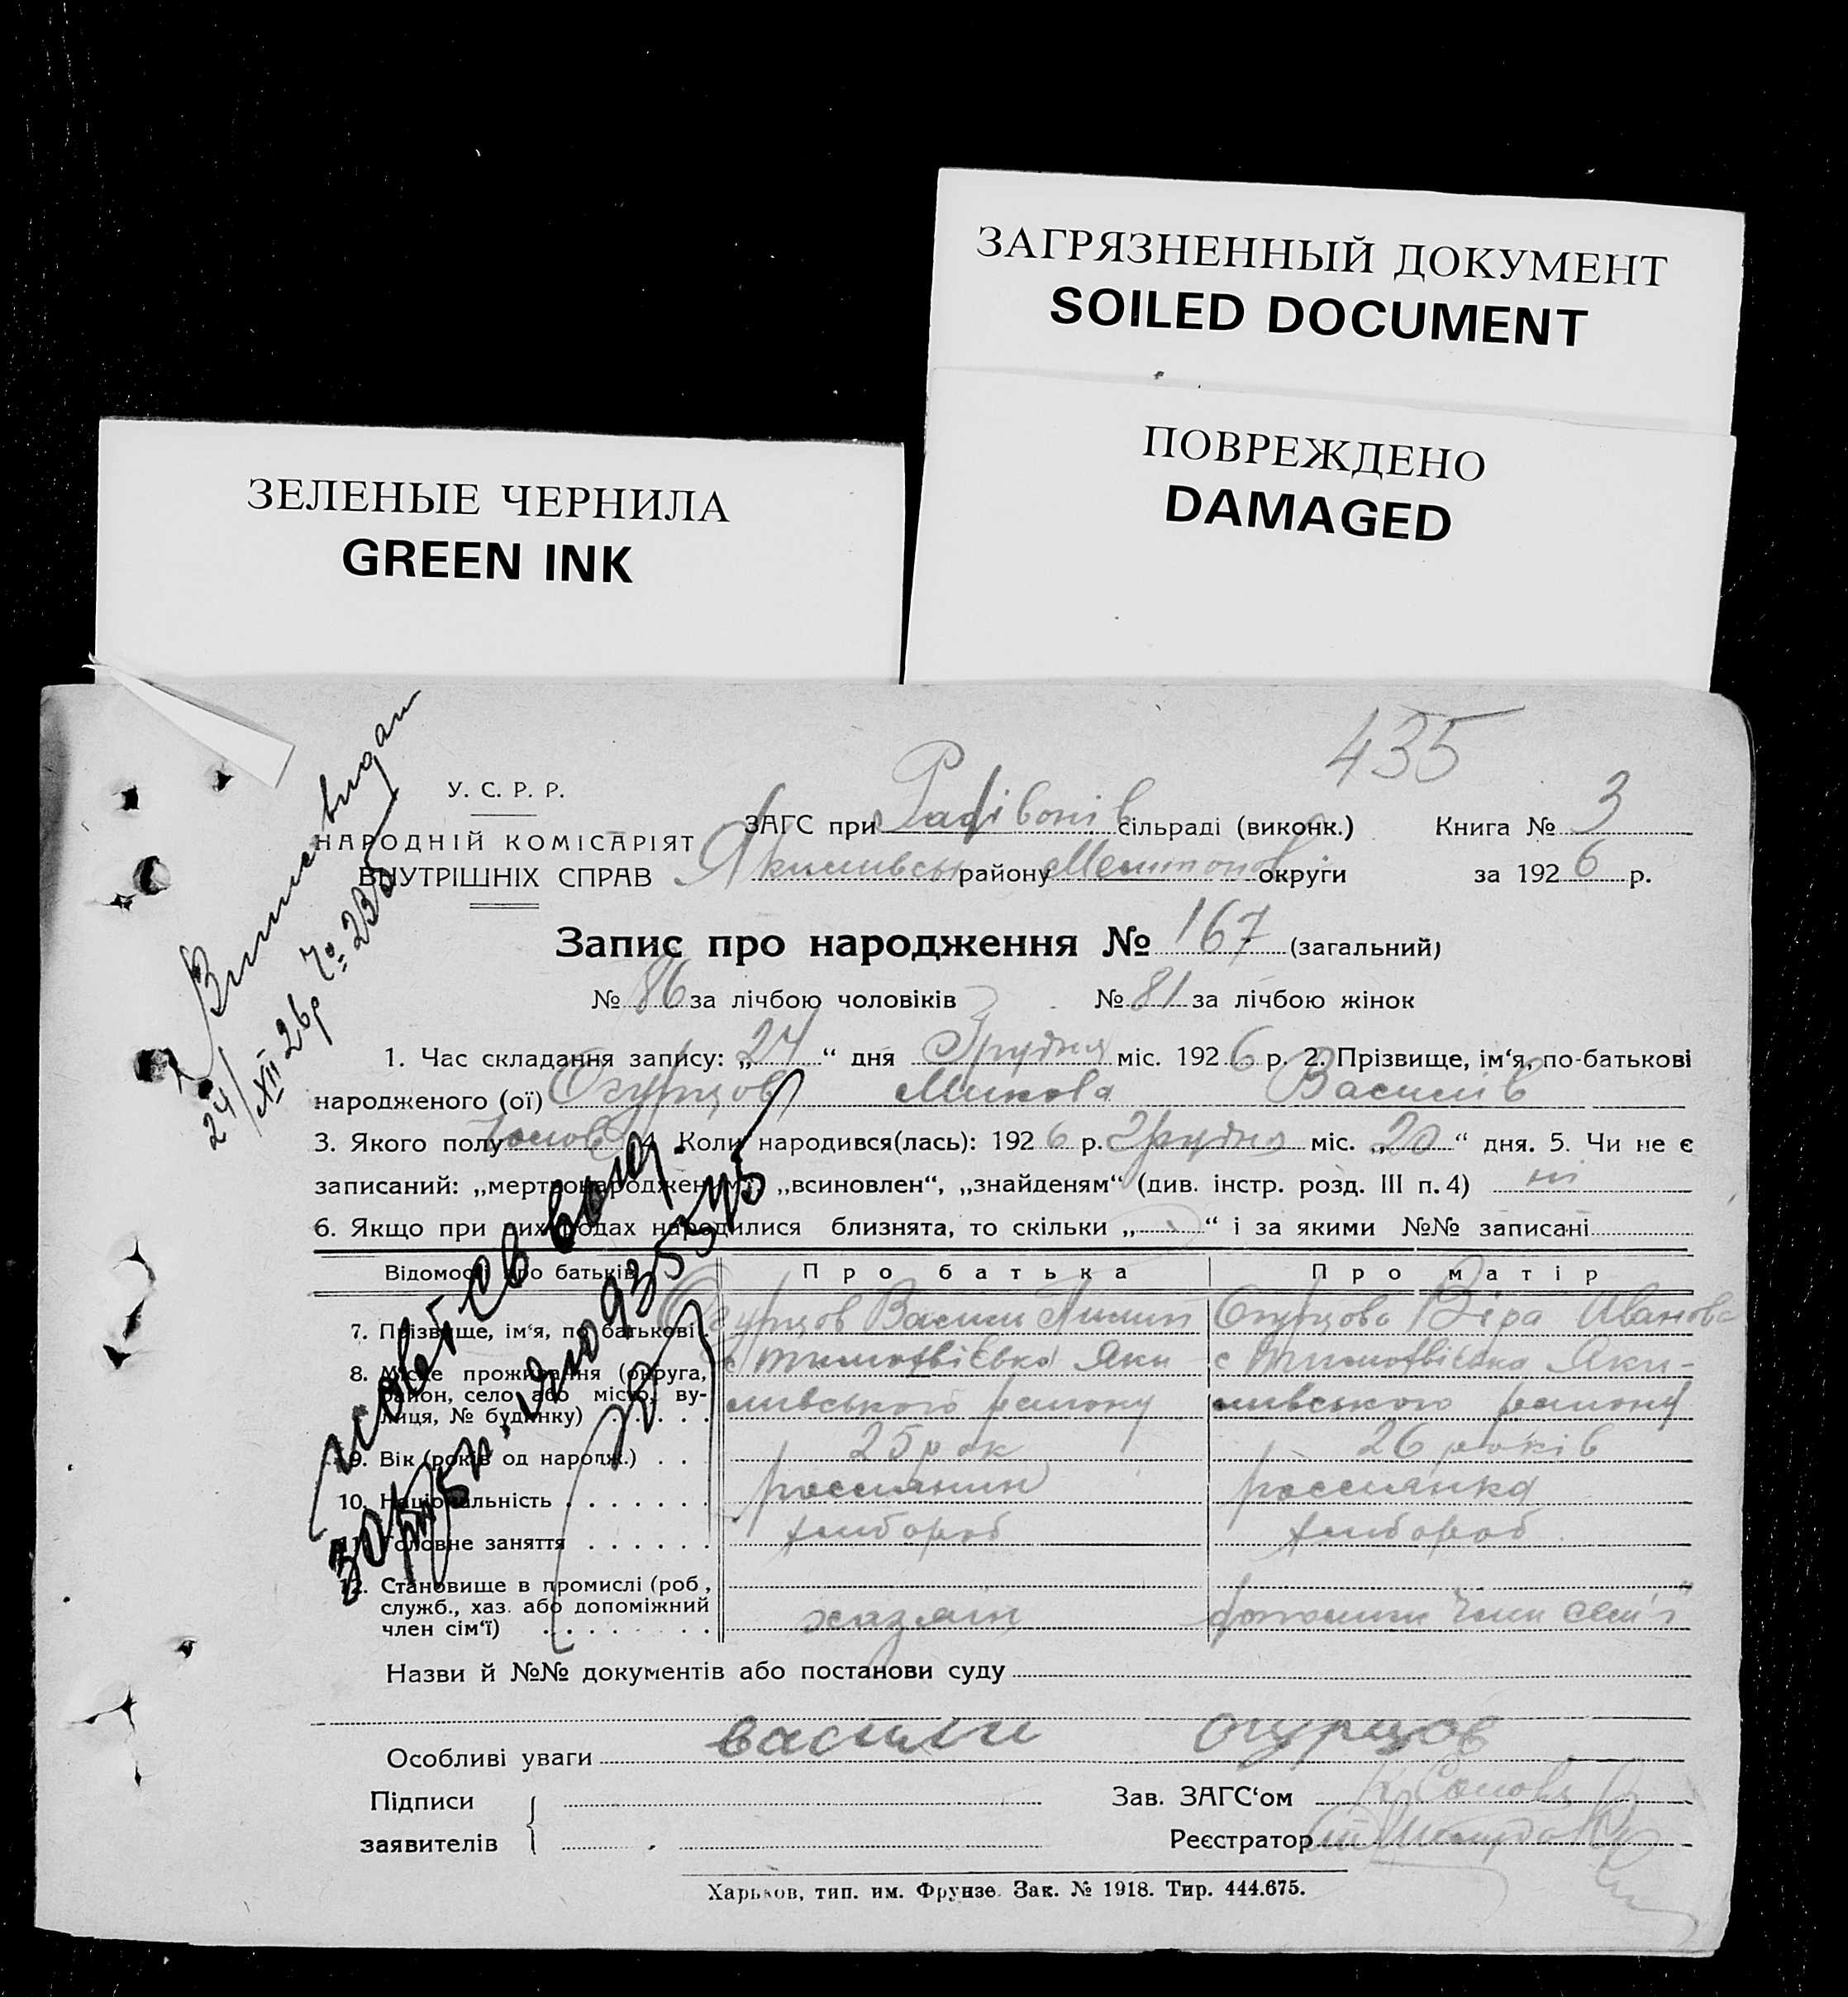 ЗАГРЯЗНЕННЫЙ ДОКУМЕНТ
SOILED DOCUMENT
ПОВРЕЖДЕНО
DAMAGED
ЗЕЛЕНЫЕ ЧЕРНИЛА
GREEN INK
435
У. С. Р. Р.
НАРОДНІЙ КОМІСАРІЯТ
ВНУТРІШНІХ СПРАВ
ЗАГС при Радівонів сільраді (виконк.) Книга № 3
Якимивськ району Мелитопол округи за 1926 р.
24/XII 26р №: 235
Запис про народження № 167 (загальний)
№ 86 за лічбою чоловіків № 81 за лічбою жінок
1. Час складання запису: „24“ дня Грудня міс. 1926 р. 2. Прізвище, ім‘я, по-батькові
народженого (ої) Огурцов Микола Василів
3. Якого полу Чолов 4. Коли народився(лась): 1926 р. Грудня міс. „20“ дня. 5. Чи не є
записаний: „мертвонародженим“, „всиновлен“, „знайденям“ (див. інстр. розд. III п. 4) ні
6. Якщо при цих родах народилися близнята, то скільки „ “ і за якими №№ записані
Відомості про батьків Про батька Про матір
7. Прізвище, ім‘я, по батькові Огурцов Васили Огурцова Віра Иванова
8. Місце проживання (округа, с Тимофвієвка Яки с Тимофвієвка Яки-
район, село або місто, ву-
лиця, № будинку) мивського району мивського району
9. Вік (років од народж.) 25 рок 26 років
10. Національність россиянин россиянка
11. Головне заняття хлібороб хлібороб
12. Становище в промислі (роб.,
служб., хаз. або допоміжний
член сім‘ї) хазяин допомижн член сем'ї
Назви й №№ документів або постанови суду
васили огурцов
Особливі уваги
Підписи
заявителів
Зав. ЗАГС‘ом
Реєстратор
Харьков, тип. им. Фрунзе. Зак. № 1918. Тир. 444.675.